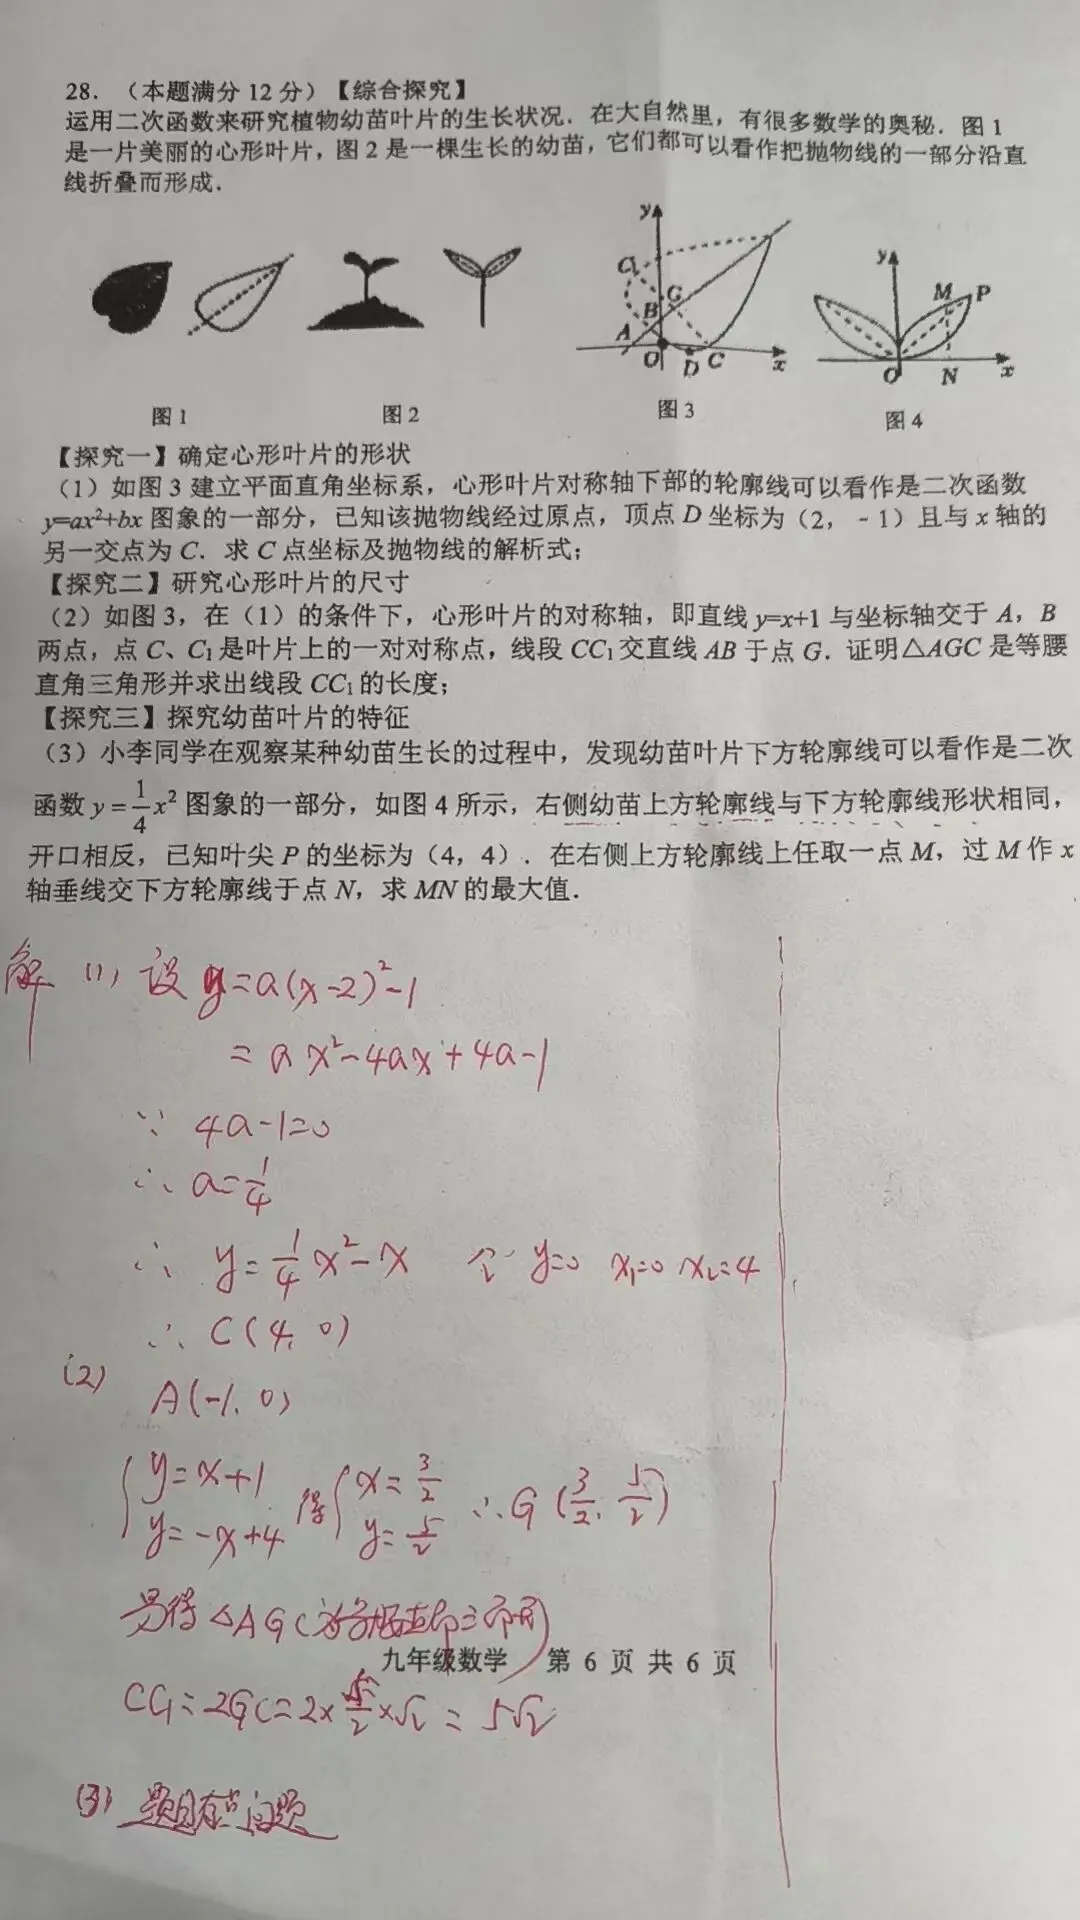 28. （本题满分 12 分）【综合探究】
运用二次函数来研究植物幼苗叶片的生长状况．在大自然里，有很多数学的奥秘．图 1
是一片美丽的心形叶片，图 2 是一棵生长的幼苗，它们都可以看作把抛物线的一部分沿直
线折叠而形成．
y
C₁
G
B
A
O
D
C
x
y
M
P
O
N
x
图 1
图 2
图 3
图 4
【探究一】确定心形叶片的形状
（1）如图 3 建立平面直角坐标系，心形叶片对称轴下部的轮廓线可以看作是二次函数
y=ax²+bx 图象的一部分，已知该抛物线经过原点，顶点 D 坐标为（2，-1）且与 x 轴的
另一交点为 C．求 C 点坐标及抛物线的解析式；
【探究二】研究心形叶片的尺寸
（2）如图 3，在（1）的条件下，心形叶片的对称轴，即直线 y=x+1 与坐标轴交于 A，B
两点，点 C、C₁是叶片上的一对对称点，线段 CC₁交直线 AB 于点 G．证明△AGC 是等腰
直角三角形并求出线段 CC₁的长度；
【探究三】探究幼苗叶片的特征
（3）小李同学在观察某种幼苗生长的过程中，发现幼苗叶片下方轮廓线可以看作是二次
函数 y=1/4x² 图象的一部分，如图 4 所示，右侧幼苗上方轮廓线与下方轮廓线形状相同，
开口相反，已知叶尖 P 的坐标为（4，4）．在右侧上方轮廓线上任取一点 M，过 M 作 x
轴垂线交下方轮廓线于点 N，求 MN 的最大值．
解 (1) 设 y=a(x-2)²-1
=ax²-4ax+4a-1
∵ 4a-1=0
∴ a=1/4
∴ y=1/4x²-x 令 y=0 x₁=0 x₂=4
∴ C(4, 0)
(2)
A(-1, 0)
{y=x+1 y=-x+4 得 {x=3/2 y=5/2 ∴G(3/2, 5/2)
易得△AGC为等腰直角三角形
九年级数学 第 6 页 共 6 页
CC₁=2GC=2×5/2×√2=5√2
(3) 题目有点问题